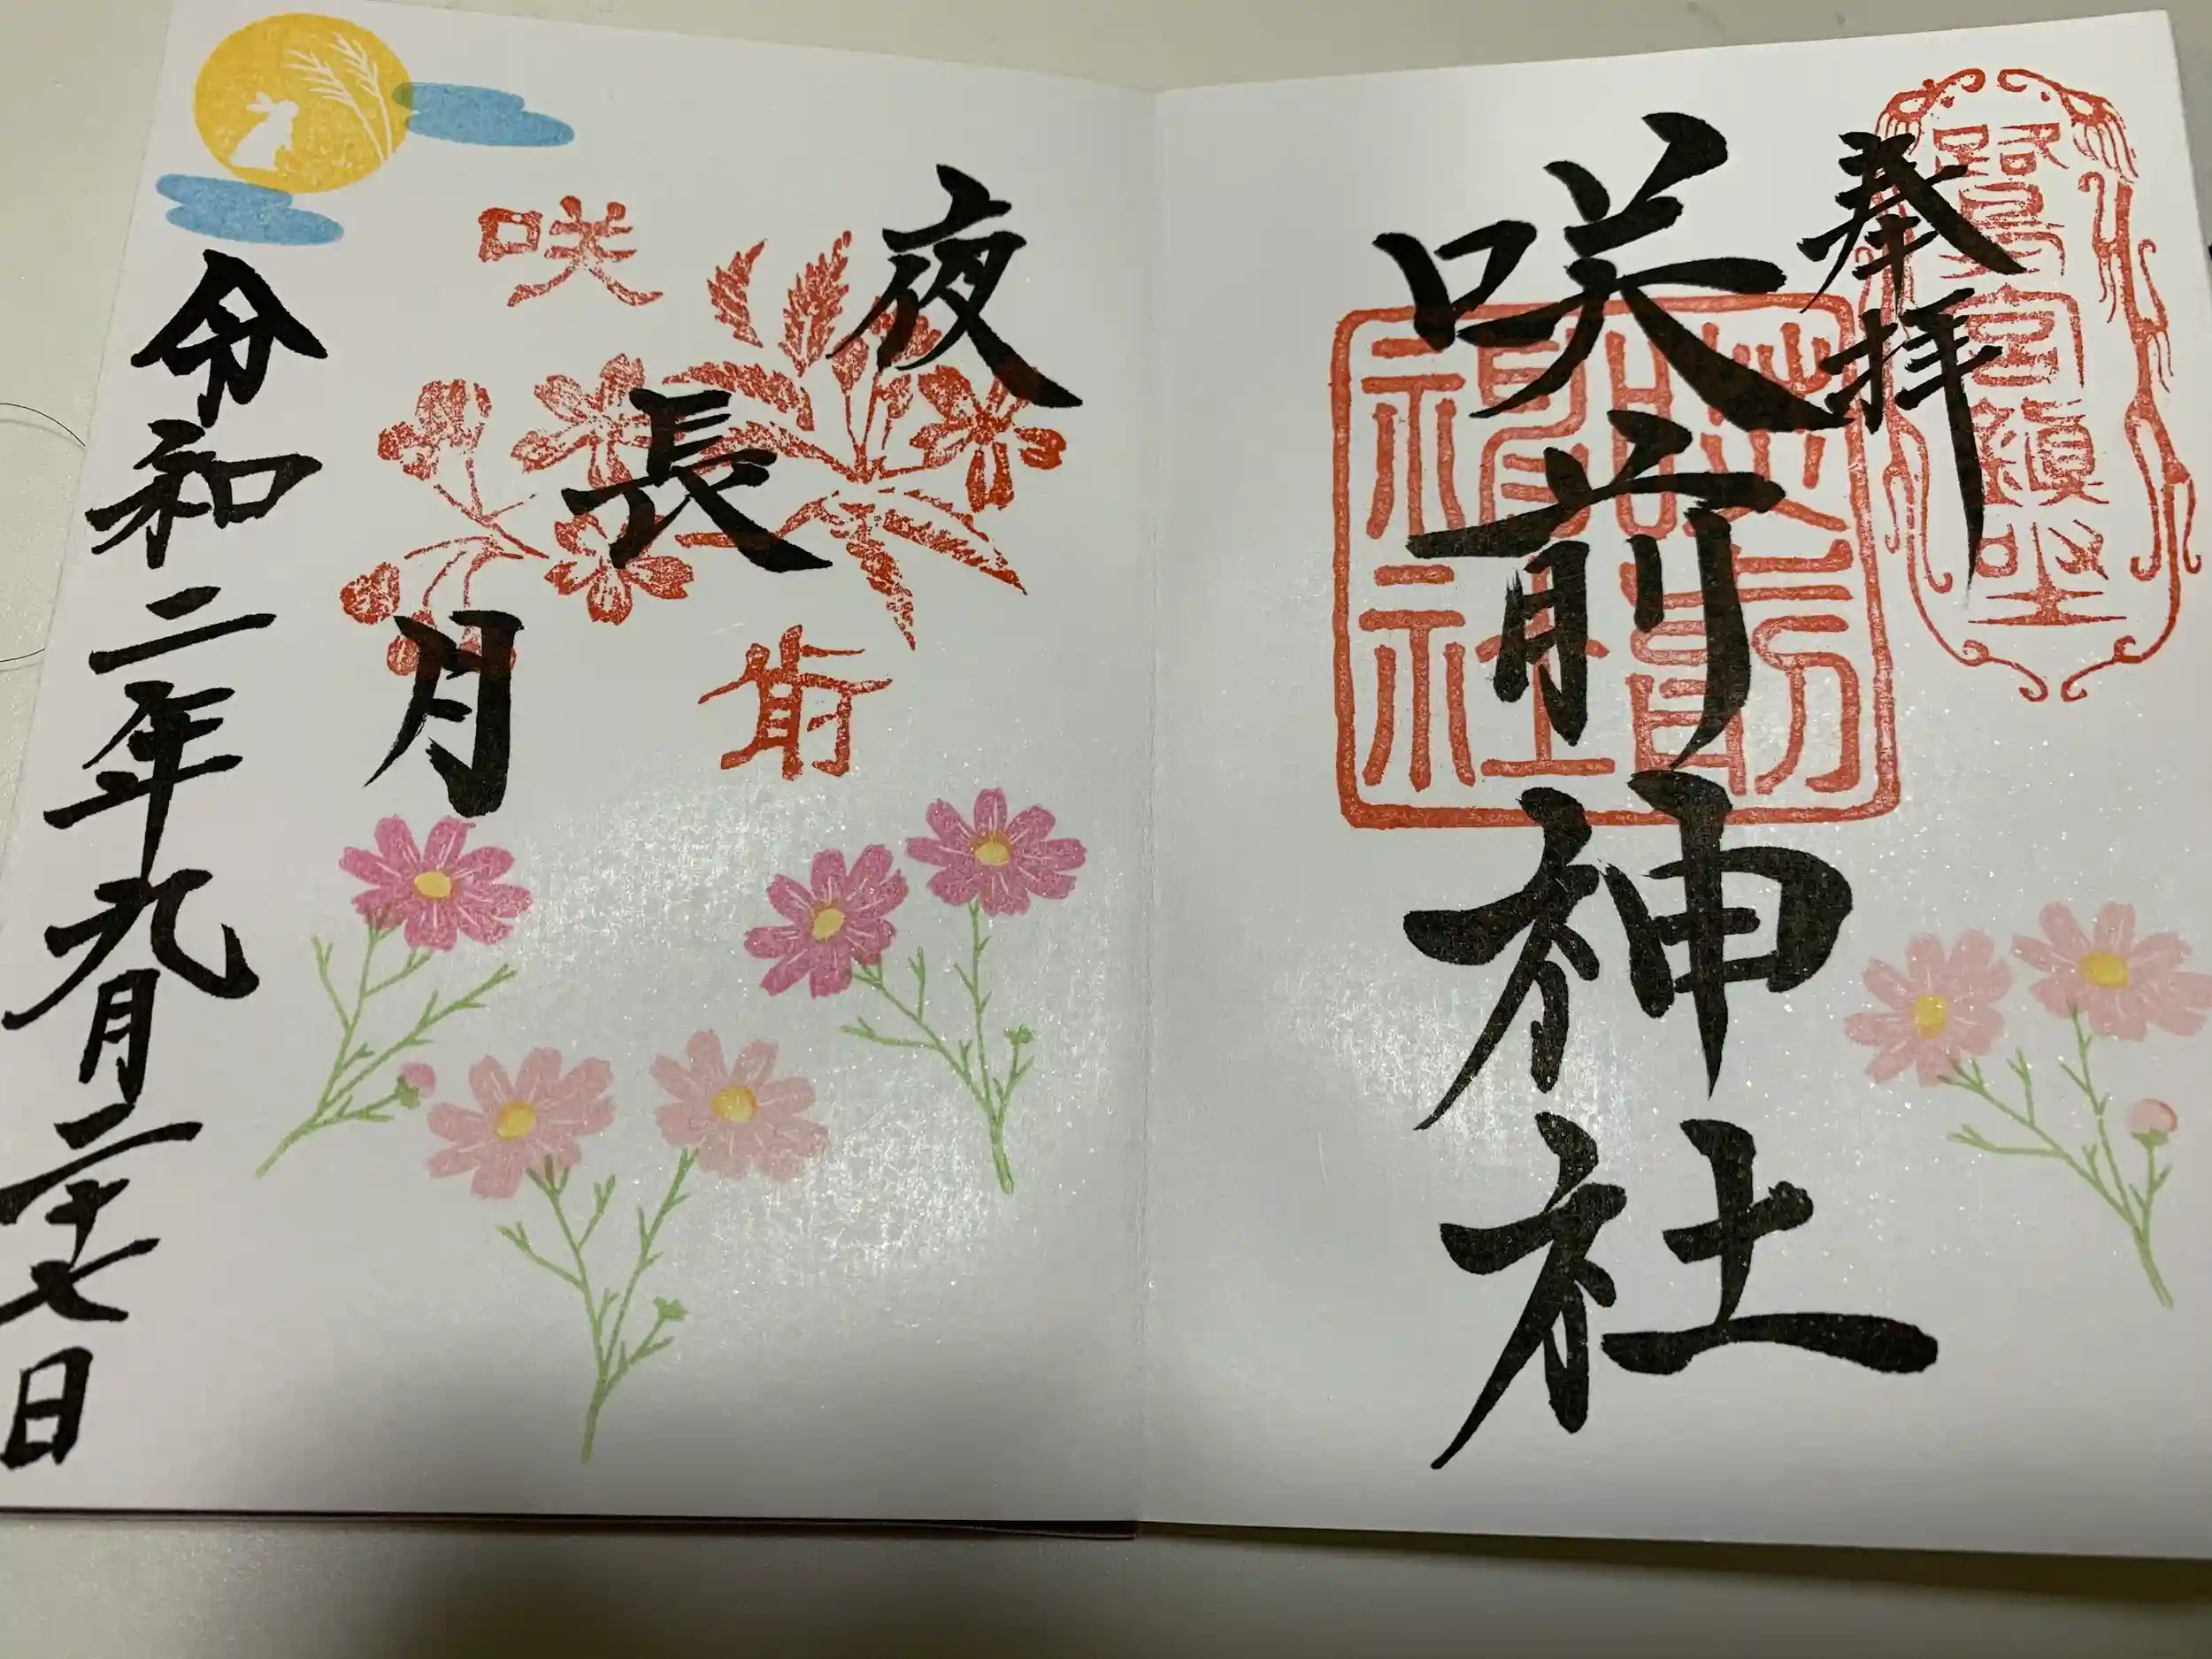 奉拝
咲前神社
咲前神社
夜長月
咲
前
令和二年九月二十七日